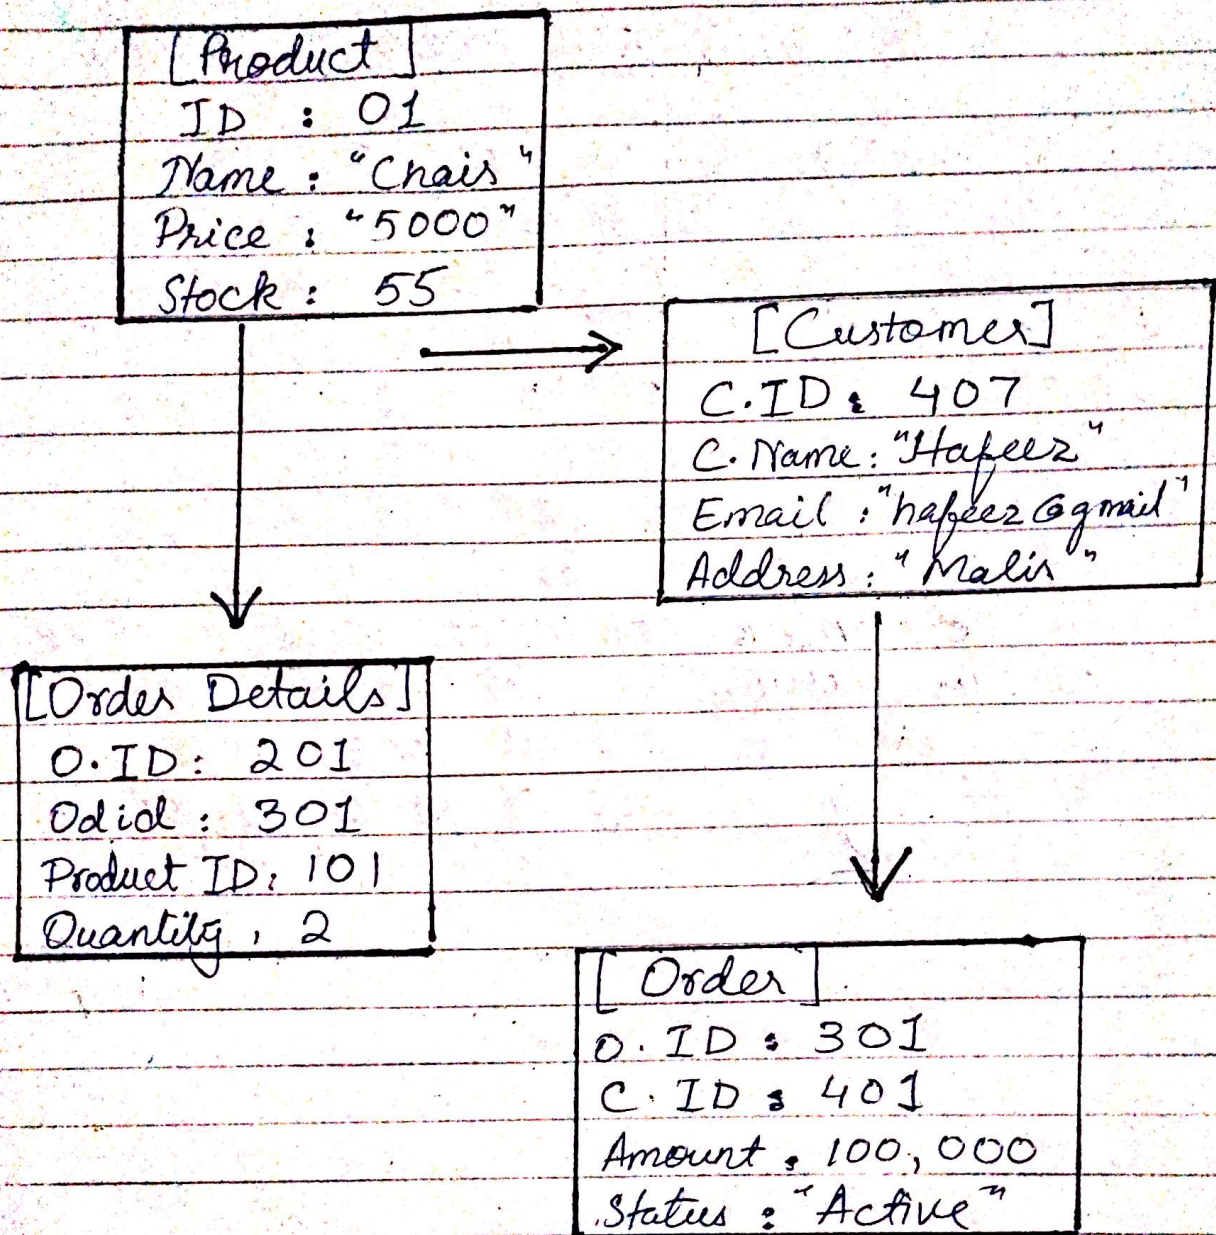 [Product]
ID : 01
Name : "Chair"
Price : "5000"
Stock : 55
[Customer]
C.ID : 407
C.Name : "Hafeez"
Email : "hafeez@gmail"
Address : "Malir"
[Order Details]
O.ID : 201
Odid : 301
Product ID : 101
Quantity : 2
[Order]
O.ID : 301
C.ID : 401
Amount : 100,000
Status : "Active"